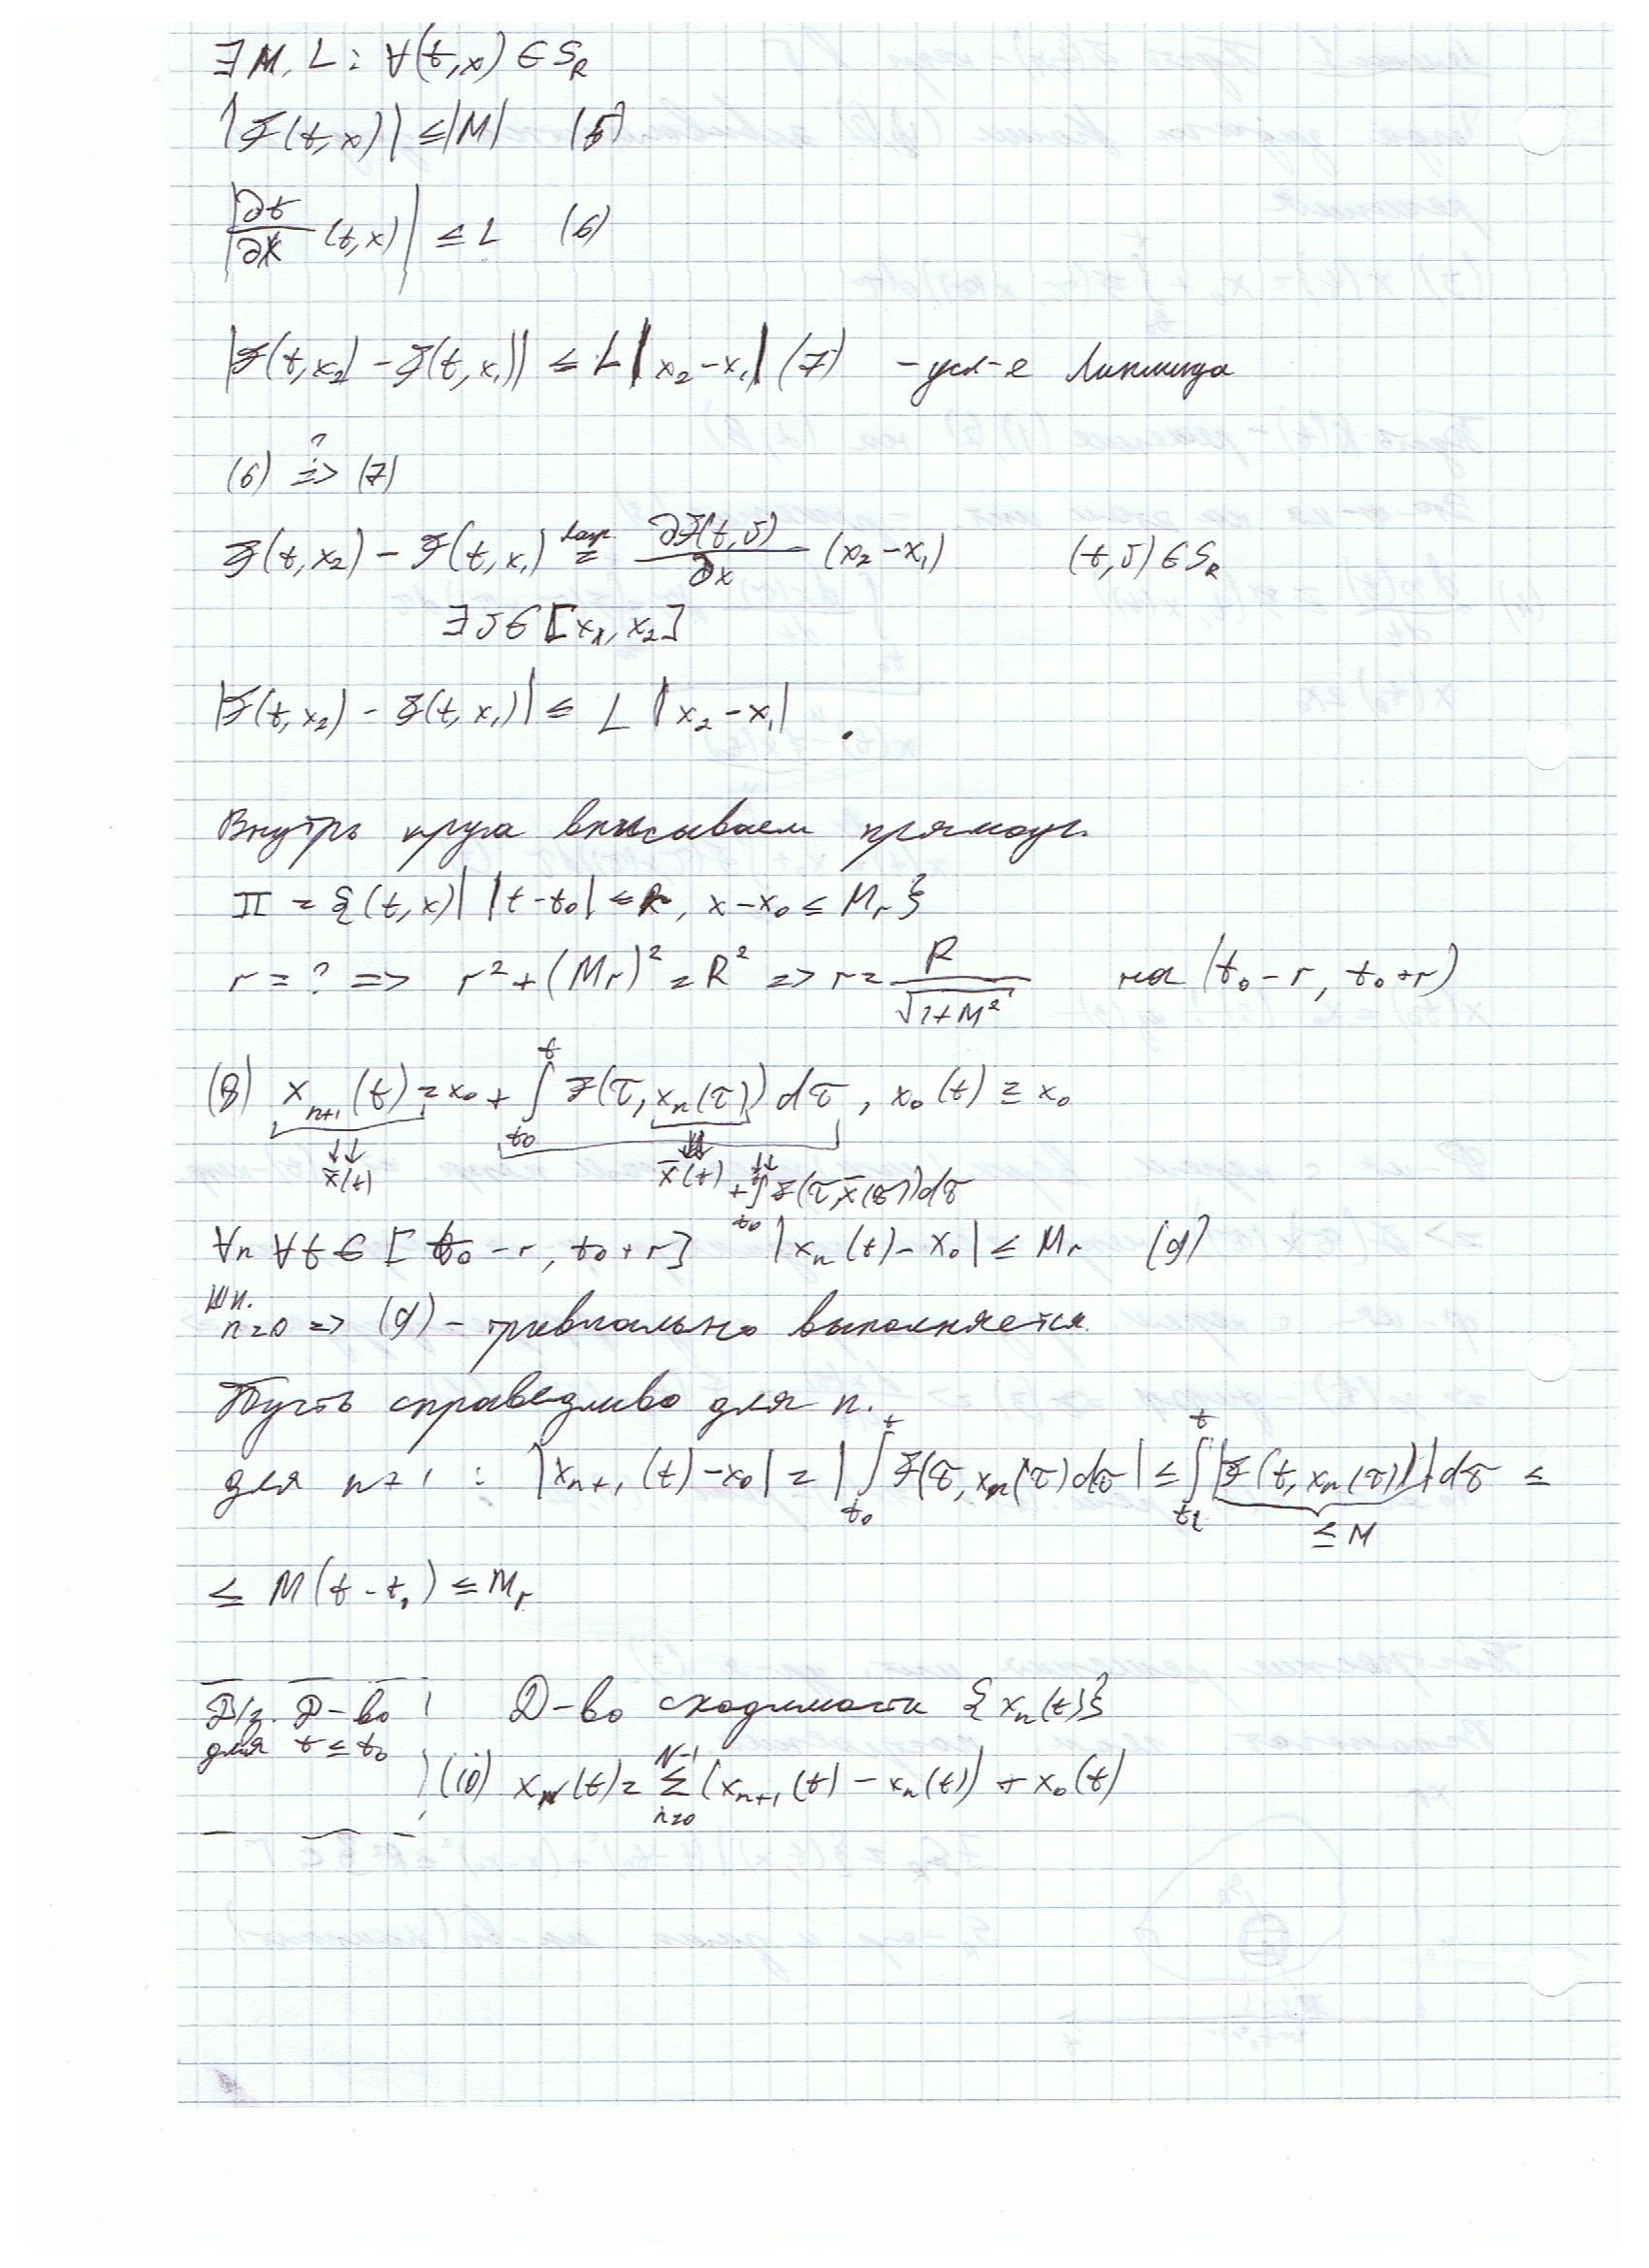 ∃ M, L : ∀(t,x) ∈ S_R
|F(t,x)| ≤ |M| (5)
|∂F/∂x (t,x)| ≤ L (6)
|F(t,x₂) - F(t,x₁)| ≤ L |x₂-x₁| (7) - усл-е Липшица
(6) ?⇒ (7)
F(t,x₂) - F(t,x₁) = ∂F(t,J)/∂x (x₂-x₁) (t,J) ∈ S_R
∃ J ∈ [x₁, x₂]
|F(t,x₂) - F(t,x₁)| ≤ L |x₂-x₁| .
Внутрь круга вписываем прямоуг.
П = {(t,x) | |t-t₀| ≤ R, x-x₀ ≤ Mr}
r = ? => r² + (Mr)² = R² => r = R/√(1+M²) на (t₀-r, t₀+r)
(8) x_{n+1}(t) = x₀ + ∫_{t₀}^{t} F(τ, x_n(τ)) dτ, x₀(t) ≡ x₀
↓↓ ↓↓ ↓↓
x̄(t) x̄(t) + ∫_{t₀} F(τ, x̄(τ)) dτ
∀n ∀t ∈ [t₀-r, t₀+r] |x_n(t) - x₀| ≤ Mr (9)
Ш и.
n=0 => (9) - тривиально выполняется.
Пусть справедливо для n.
для n+1 : |x_{n+1}(t) - x₀| = |∫_{t₀}^{t} F(τ, x_n(τ) dτ| ≤ ∫_{t₀}^{t} |F(t, x_n(τ))| dτ ≤
≤ M
≤ M(t-t₀) ≤ Mr
Д/з. Д-во Д-во сходимости {x_n(t)}
для t ≤ t₀
(10) x_N(t) = Σ_{n=0}^{N-1} (x_{n+1}(t) - x_n(t)) + x₀(t)